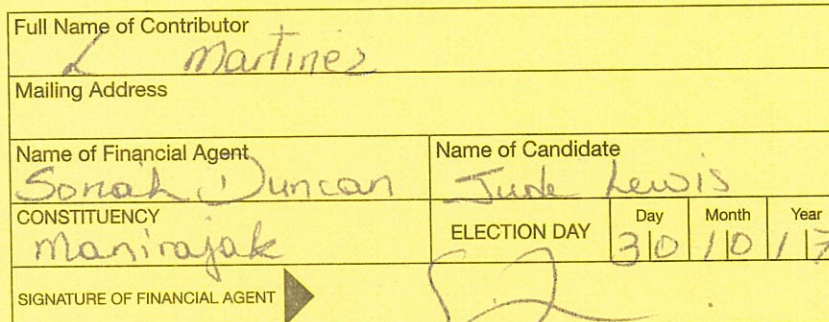 Full Name of Contributor
L Martinez
Mailing Address
Name of Financial Agent
Sonah Duncan
Name of Candidate
June Lewis
CONSTITUENCY
Manirajak
ELECTION DAY
Day Month Year
30 10 17
SIGNATURE OF FINANCIAL AGENT